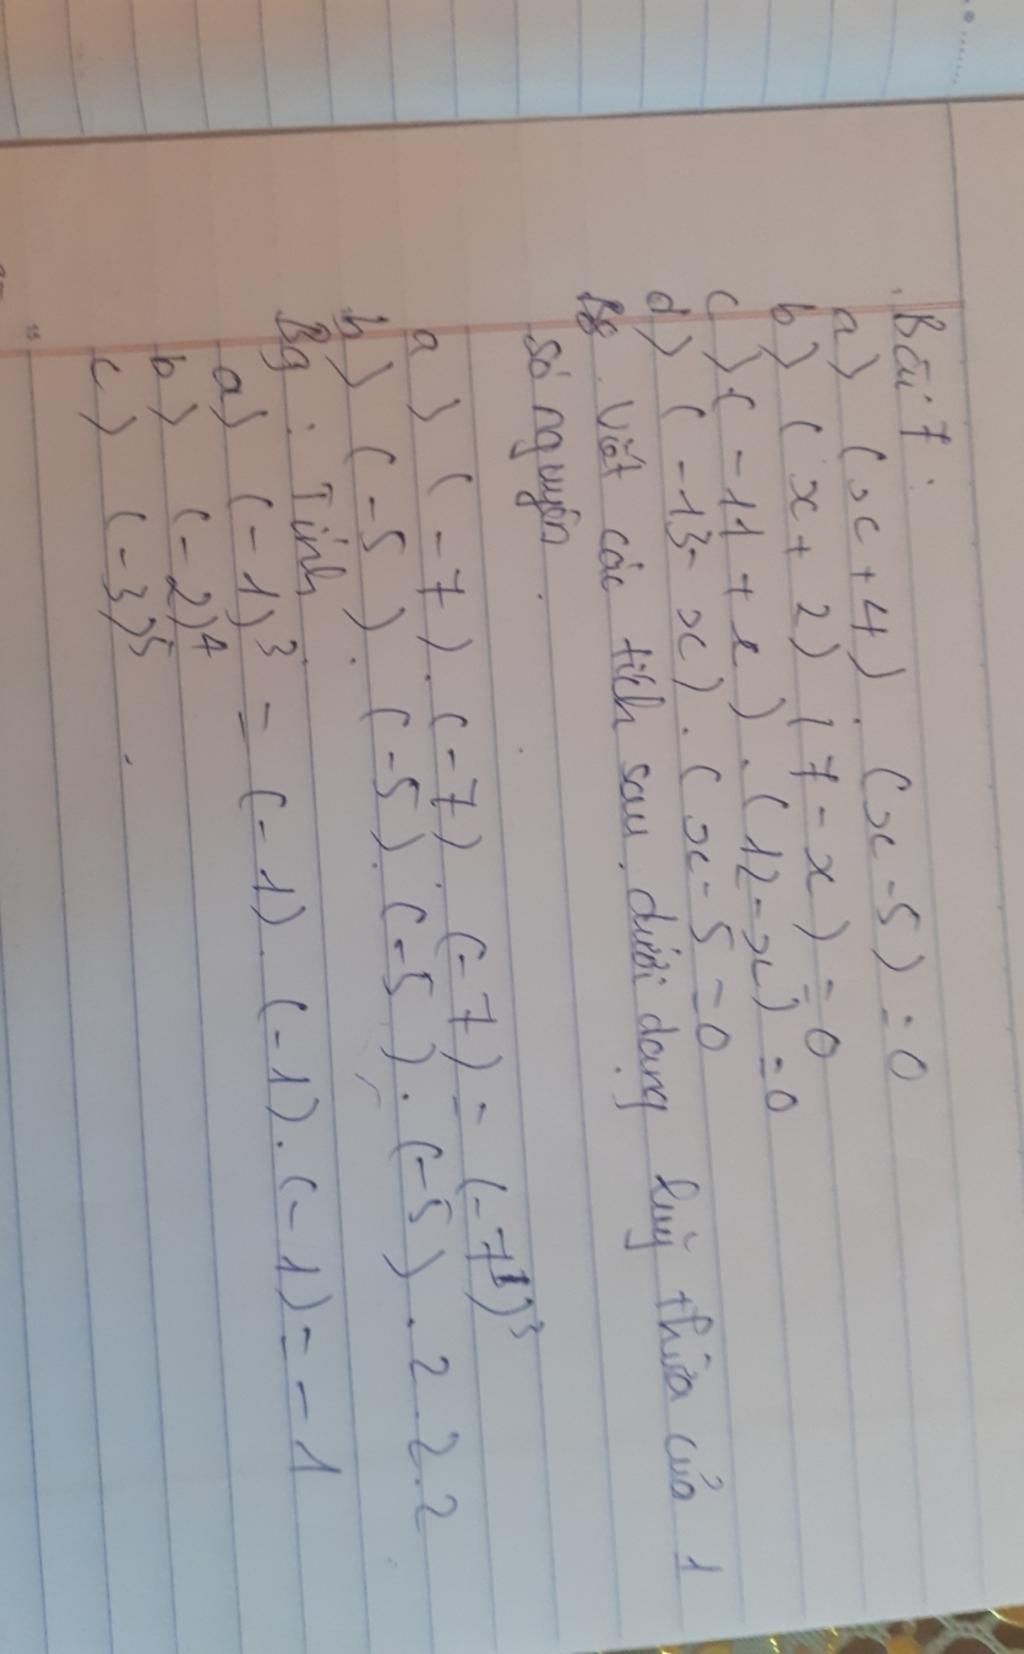 Bài 7:
a) (x+4). (x-5) = 0
b) (x+2) (7-x) = 0
c) (-11+x). (12-x) = 0
d) (-13-x). (x-5=0
B8. Viết các tích sau dưới dạng luỹ thừa của 1
số nguyên
a) (-7). (-7). (-7) = (-7)³
b) (-5). (-5). (-5). (-5). 2.2.2
B9: Tính
a) (-1)³ = (-1). (-1). (-1) = -1
b) (-2)⁴
c) (-3)⁵